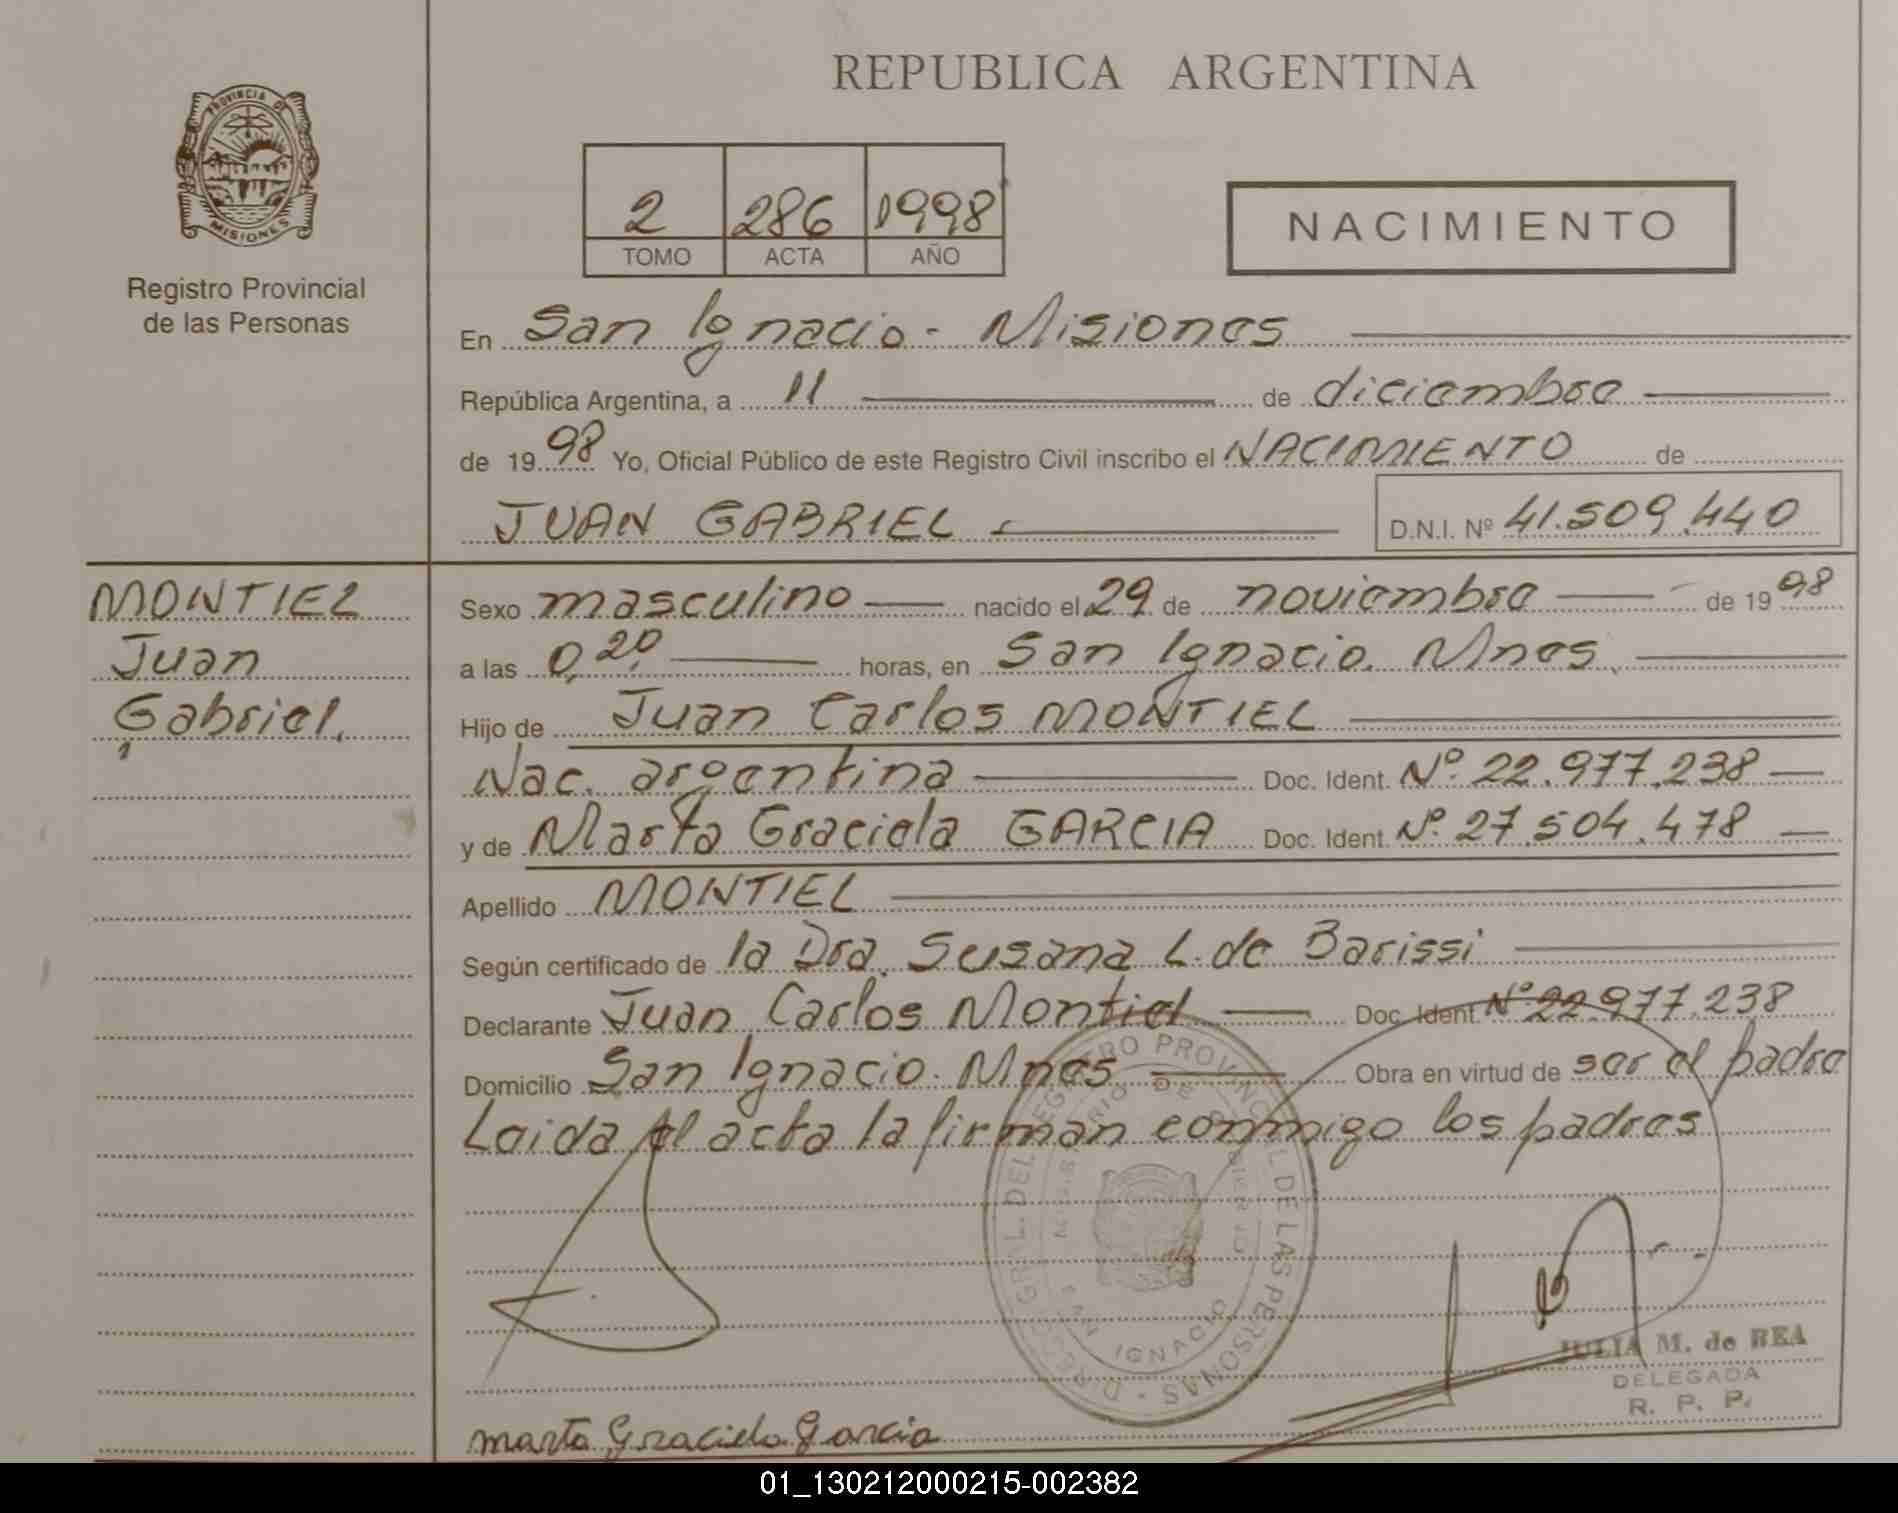 REPUBLICA ARGENTINA
PROVINCIA DE
MISIONES
Registro Provincial
de las Personas
2 286 1998
TOMO ACTA AÑO
NACIMIENTO
En San Ignacio - Misiones
República Argentina, a 11 de diciembre
de 1998 Yo, Oficial Público de este Registro Civil inscribo el NACIMIENTO de
JUAN GABRIEL D.N.I. Nº 41.509.440
MONTIEL
Juan
Gabriel.
Sexo masculino nacido el 29 de noviembre de 1998
a las 0,20 horas, en San Ignacio. Mnes.
Hijo de Juan Carlos MONTIEL
Nac. argentina Doc. Ident. Nº 22.977.238
y de Marta Graciela GARCIA Doc. Ident. Nº 27.504.478
Apellido MONTIEL
Según certificado de la Dra. Susana L. de Barissi
Declarante Juan Carlos Montiel Doc. Ident. Nº 22.977.238
Domicilio San Ignacio. Mnes Obra en virtud de ser el padre
Leida el acta la firman conmigo los padres
DIRECC. GRAL. DEL REGISTRO PROVINCIAL DE LAS PERSONAS
MINISTERIO DE GOBIERNO
SAN IGNACIO
JULIA M. de BEA
DELEGADA
R. P. P.
Marta Graciela Garcia
01_130212000215-002382